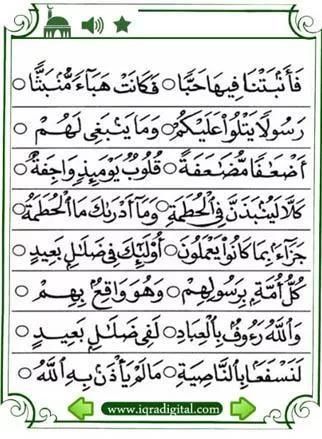 فَأَنۢبَتۡنَا فِيهَا حَبًّا ○ فَكَانَتۡ هَبَآءً مُّنۢبَثًّا ○
رَسُولًا يَتۡلُوا۟ عَلَيۡكُمۡ ○ وَمَا يَنۢبَغِى لَهُمۡ ○
أَضۡعَٰفًا مُّضَٰعَفَةً ○ قُلُوبٌ يَوۡمَئِذٍ وَاجِفَةٌ ○
كَلَّا لَيُنۢبَذَنَّ فِى الۡحُطَمَةِ ○ وَمَآ أَدۡرَىٰكَ مَا الۡحُطَمَةُ ○
جَزَآءًۢ بِمَا كَانُوا۟ يَعۡمَلُونَ ○ أُو۟لَٰٓئِكَ فِى ضَلَٰلٍۭ بَعِيدٍ ○
كُلُّ أُمَّةٍۭ بِرَسُولِهِمۡ ○ وَهُوَ وَاقِعٌۢ بِهِمۡ ○
وَاللَّهُ رَءُوفٌۢ بِالۡعِبَادِ ○ لَفِى ضَلَٰلٍۭ بَعِيدٍ ○
لَنَسۡفَعَۢا بِالنَّاصِيَةِ ○ مَا لَمۡ يَأۡذَنۢ بِهِ اللَّهُ ○
www.iqradigital.com